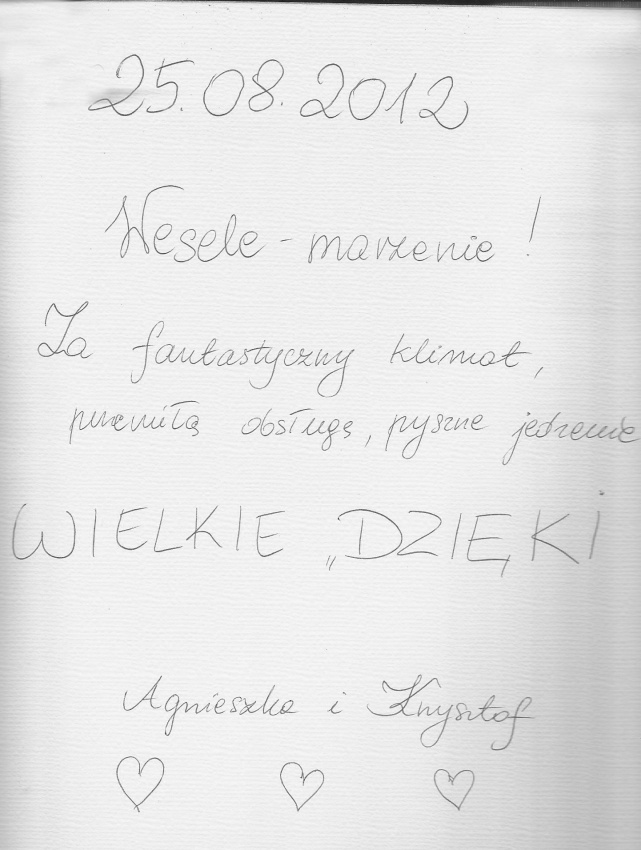 25.08.2012
Wesele - marzenie!
Za fantastyczny klimat,
przemiłą obsługę, pyszne jedzenie
WIELKIE „DZIĘKI
Agnieszka i Krzysztof